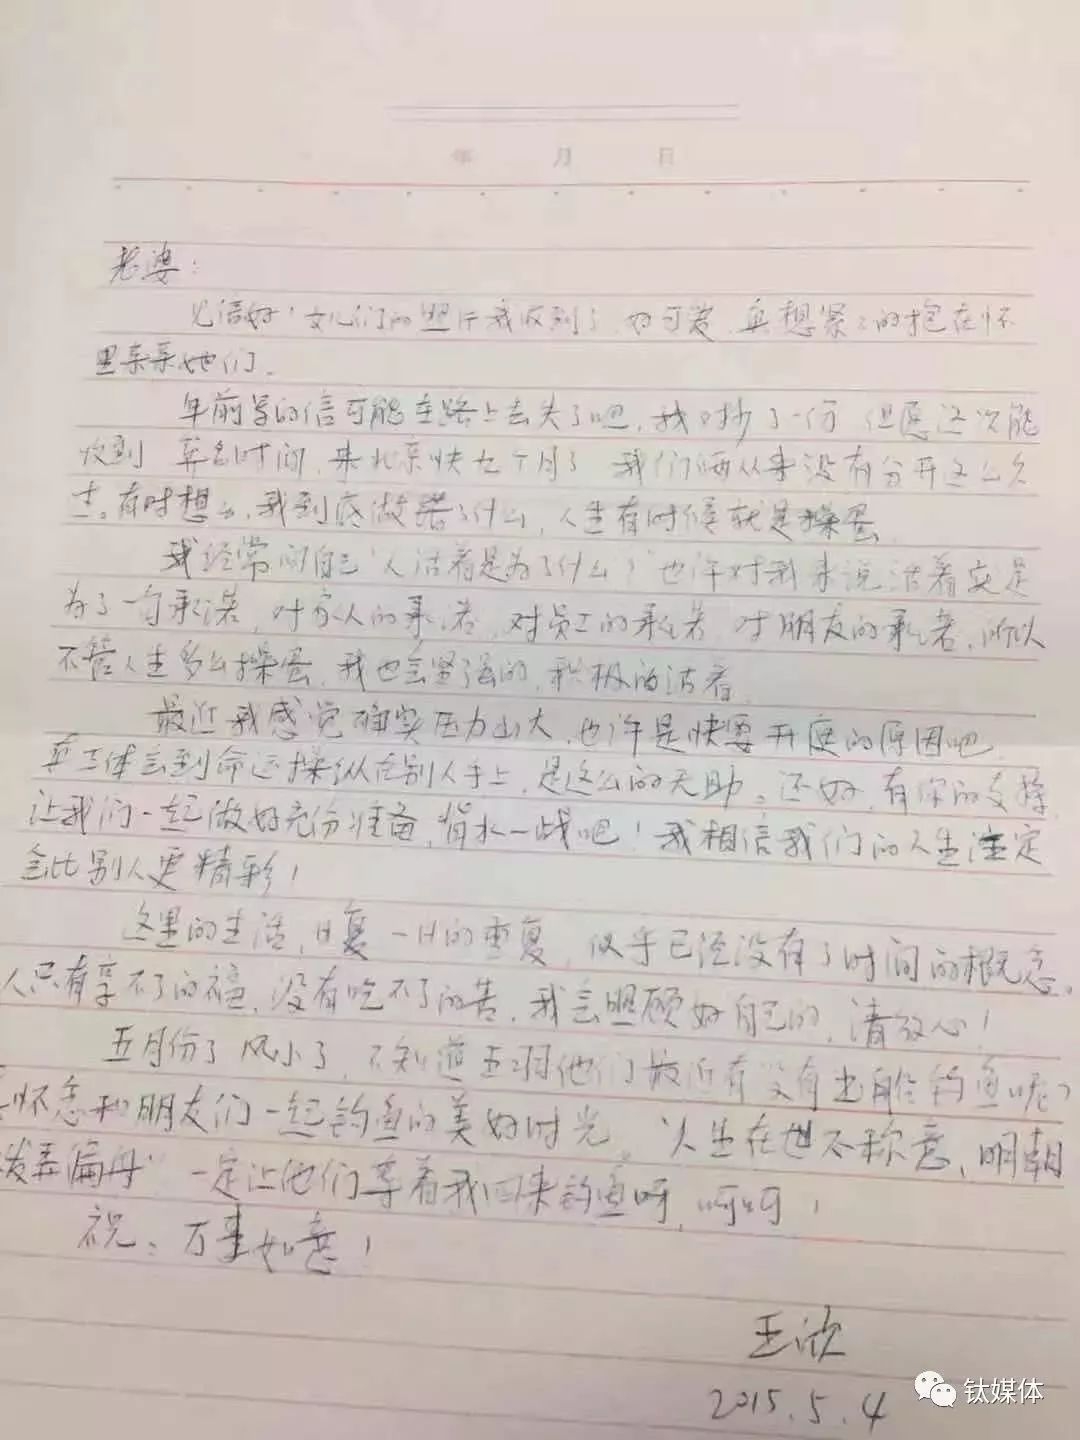 年 月 日
老婆:
见信好!女儿们的照片我收到了,好可爱,真想紧紧的抱在怀
里亲亲她们。
年前写的信可能在路上丢失了吧,我又抄了一份,但愿这次能
收到。算算时间,来北京快九个月了,我们俩从来没有分开这么久
过。有时想想,我到底做错了什么,人生有时候就是操蛋。
我经常问自己"人活着是为了什么?"也许对我来说活着就是
为了一句承诺,对家人的承诺,对员工的承诺,对朋友的承诺,所以
不管人生多么操蛋,我也会坚强的,积极的活着。
最近我感觉确实压力山大,也许是快要开庭的原因吧。
真正体会到命运操纵在别人手上,是这么的无助。还好,有你的支持,
让我们一起做好充份准备,背水一战吧!我相信我们的人生注定
会比别人更精彩!
这里的生活,日复一日的重复,似乎已经没有了时间的概念。
人只有享不了的福,没有吃不了的苦,我会照顾好自己的,请放心!
五月份了,风小了,不知道他们最近有没有出船钓鱼呢?
怀念和朋友们一起钓鱼的美好时光。"人生在世不称意,明朝
弄扁舟"一定让他们等着我回来钓鱼呀,呵呵!
祝:万事如意!
王欣
2015.5.4
钛媒体